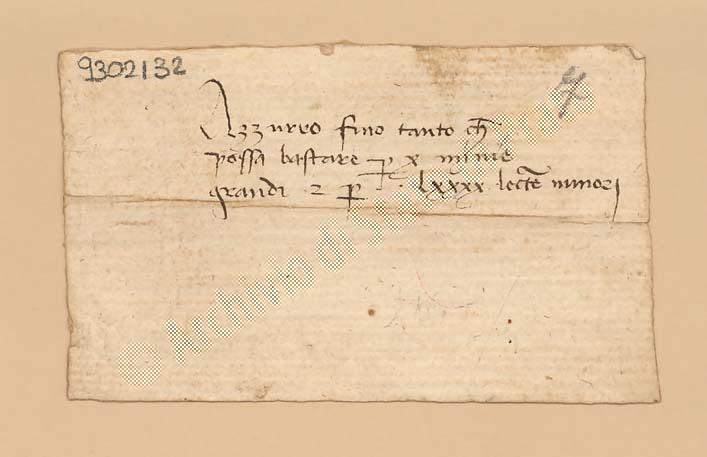 9302132
7
Azzurro fino tanto ch
possa bastare p x minie
grandi 2 p · lxxxx lectẽ minori
© Archivio di Stato